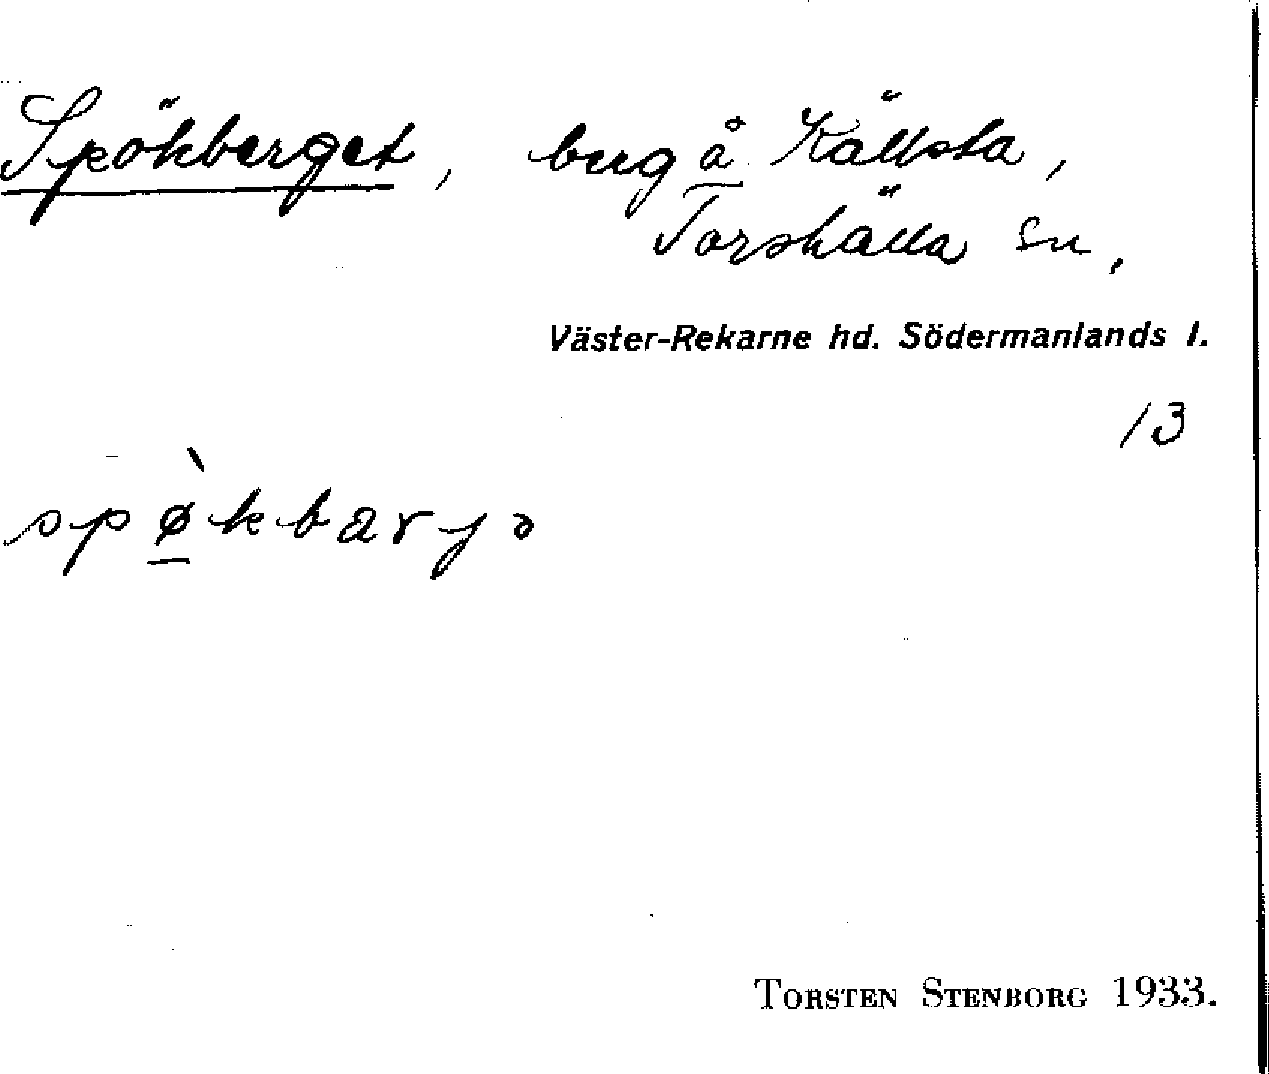 Spökberget, berg å Källsta,
Torshälla sn.
Väster-Rekarne hd. Södermanlands l.
13
spø̀kbarjə
TORSTEN STENBORG 1933.